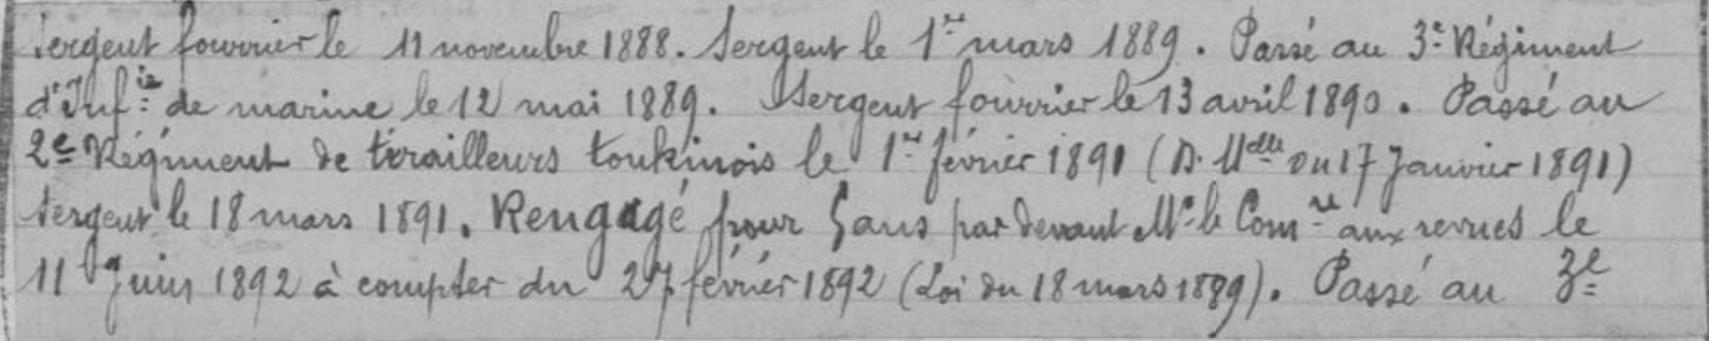 Sergent fourrier le 11 novembre 1888. Sergent le 1er mars 1889. Passé au 3e Régiment
d'Infie de marine le 12 mai 1889. Sergent fourrier le 13 avril 1890. Passé au
2e Régiment de tirailleurs tonkinois le 1er février 1891 (D. Mlle du 17 Janvier 1891)
Sergent le 18 mars 1891. Rengagé pour 5 ans par devant Mr le Comre aux revues le
11 Juin 1892 à compter du 27 février 1892 (Loi du 18 mars 1889). Passé au 3e